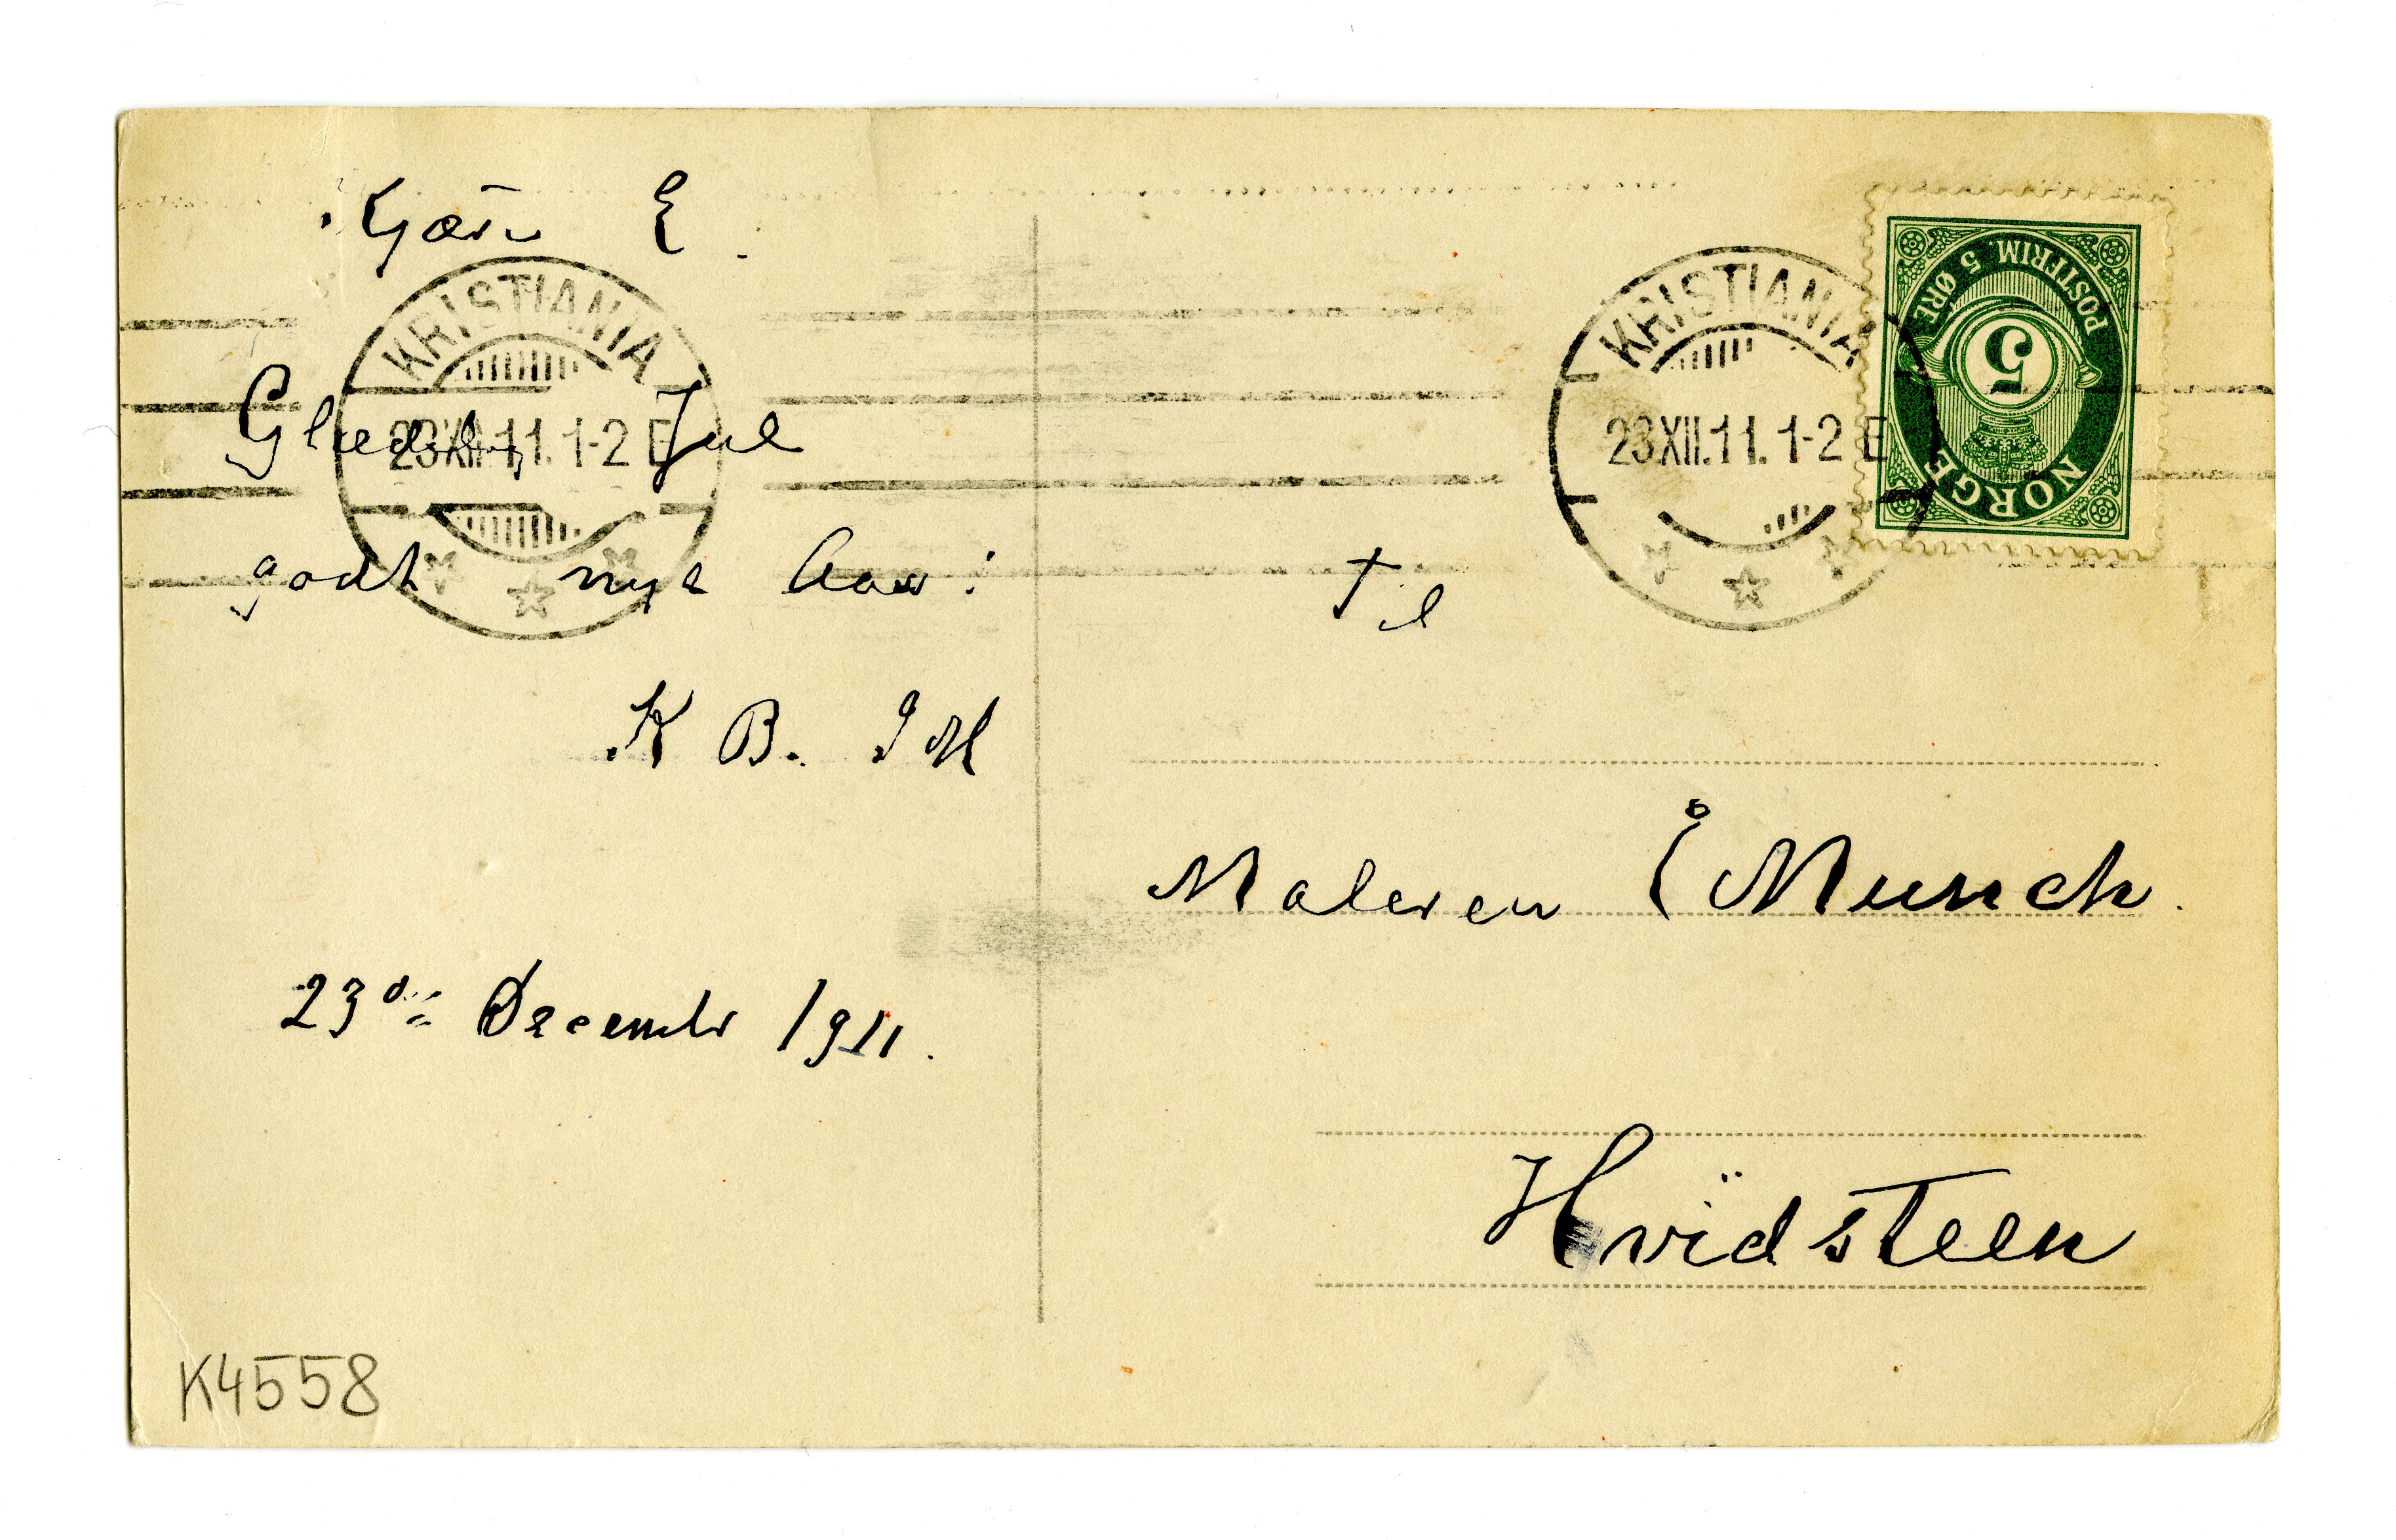 Kjære E.
Glædelig Jul
godt nyt Aar!
K B. I M
23de December 1911.
K4558
KRISTIANIA
23 XII. 11. 1-2 E
KRISTIANIA
23 XII. 11. 1-2 E
POSTFRIM. 5 ØRE
5
NORGE
Til
Maleren E Munch.
Hvidsteen